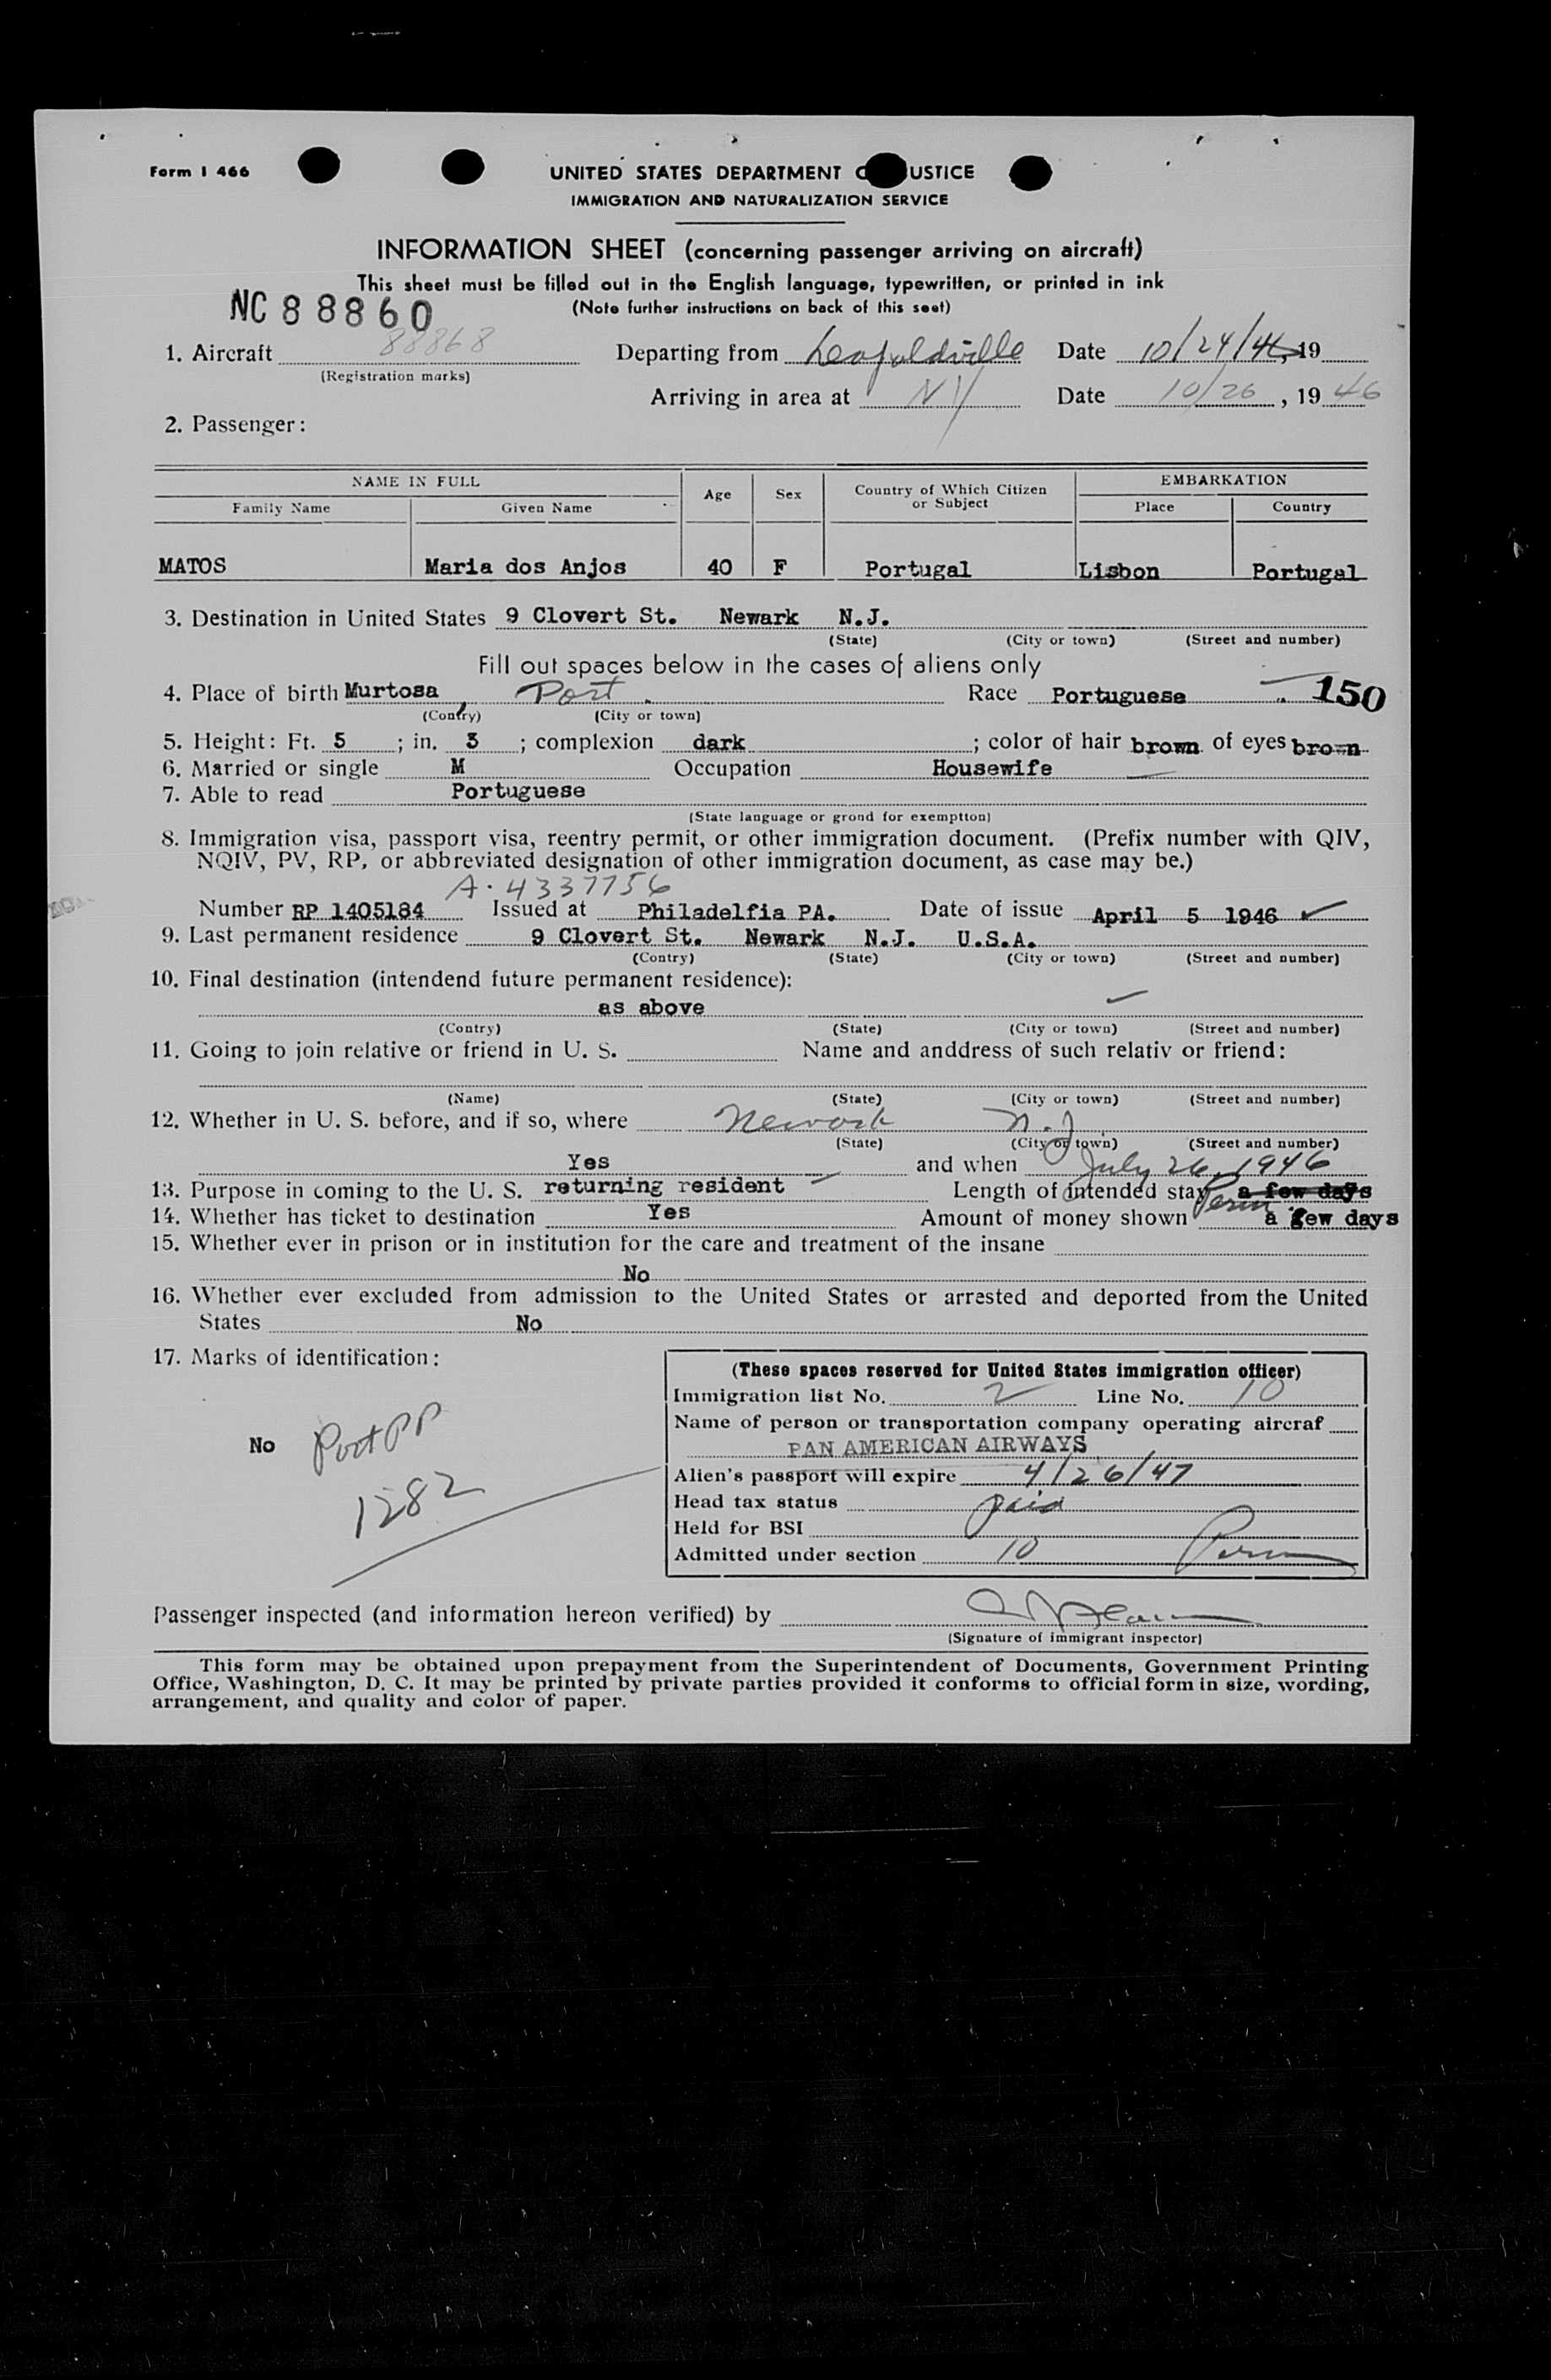 Form I 466
UNITED STATES DEPARTMENT O USTICE
IMMIGRATION AND NATURALIZATION SERVICE
INFORMATION SHEET (concerning passenger arriving on aircraft)
This sheet must be filled out in the English language, typewritten, or printed in ink
(Note further instructions on back of this seet)
NC 88860
88868
1. Aircraft Departing from Leopoldville Date 10/24/46, 19
(Registration marks)
Arriving in area at NY Date 10/26, 1946
2. Passenger:
NAME IN FULL Age Sex Country of Which Citizen or Subject EMBARKATION
Family Name Given Name Place Country
MATOS Maria dos Anjos 40 F Portugal Lisbon Portugal
3. Destination in United States 9 Clovert St. Newark N.J.
(State) (City or town) (Street and number)
Fill out spaces below in the cases of aliens only
4. Place of birth Murtosa Port. Race Portuguese 150
(Contry) (City or town)
5. Height: Ft. 5 ; in. 3 ; complexion dark ; color of hair brown of eyes brown
6. Married or single M Occupation Housewife
7. Able to read Portuguese
(State language or grond for exemption)
8. Immigration visa, passport visa, reentry permit, or other immigration document. (Prefix number with QIV,
NQIV, PV, RP, or abbreviated designation of other immigration document, as case may be.)
A-4337756
Number RP 1405184 Issued at Philadelfia PA. Date of issue April 5 1946
9. Last permanent residence 9 Clovert St. Newark N.J. U.S.A.
(Contry) (State) (City or town) (Street and number)
10. Final destination (intendend future permanent residence):
as above
(Contry) (State) (City or town) (Street and number)
11. Going to join relative or friend in U. S. Name and anddress of such relativ or friend:
(Name) (State) (City or town) (Street and number)
12. Whether in U. S. before, and if so, where Newark N.J
(State) (City or town) (Street and number)
Yes and when July 26, 1946
13. Purpose in coming to the U. S. returning resident Length of intended stay a few days
Perm
14. Whether has ticket to destination Yes Amount of money shown a few days
15. Whether ever in prison or in institution for the care and treatment of the insane
No
16. Whether ever excluded from admission to the United States or arrested and deported from the United
States No
17. Marks of identification:
No Port PP
1282
(These spaces reserved for United States immigration officer)
Immigration list No. 2 Line No. 10
Name of person or transportation company operating aircraf
PAN AMERICAN AIRWAYS
Alien's passport will expire 4/26/47
Head tax status paid
Held for BSI
Admitted under section 10 Perm
Passenger inspected (and information hereon verified) by
(Signature of immigrant inspector)
This form may be obtained upon prepayment from the Superintendent of Documents, Government Printing
Office, Washington, D. C. It may be printed by private parties provided it conforms to official form in size, wording,
arrangement, and quality and color of paper.